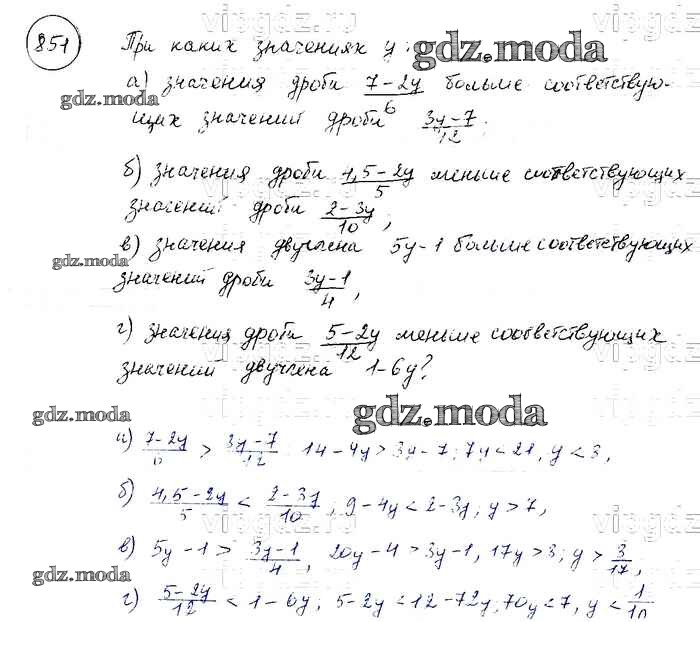 851
При каких значениях y:
а) значения дроби (7-2y)/6 больше соответствую-
щих значений дроби (3y-7)/12;
б) значения дроби (4,5-2y)/5 меньше соответствующих
значений дроби (2-3y)/10;
в) значения двучлена 5y-1 больше соответствующих
значений дроби (3y-1)/4,
г) значения дроби (5-2y)/12 меньше соответствующих
значений двучлена 1-6y?
а) (7-2y)/6 > (3y-7)/12 14-4y > 3y-7; 7y < 21, y < 3,
б) (4,5-2y)/5 < (2-3y)/10; 9-4y < 2-3y; y > 7,
в) 5y-1 > (3y-1)/4, 20y-4 > 3y-1, 17y > 3; y > 3/17,
г) (5-2y)/12 < 1-6y; 5-2y < 12-72y, 70y < 7, y < 1/10
gdz.moda
gdz.moda
gdz.moda
gdz.moda
gdz.moda
gdz.moda
gdz.moda